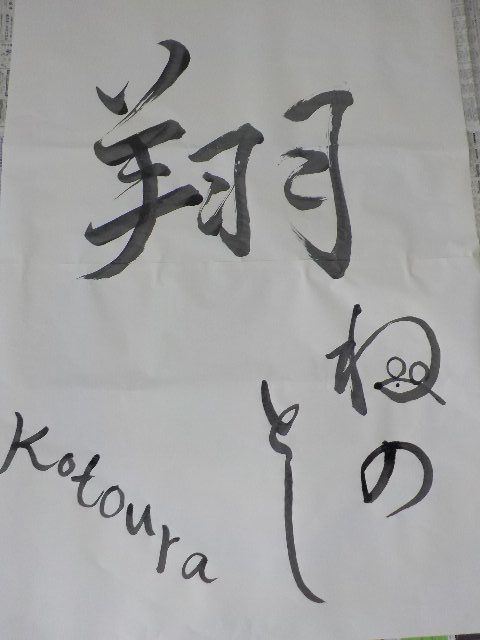 翔
ねの
とし
Kotoura